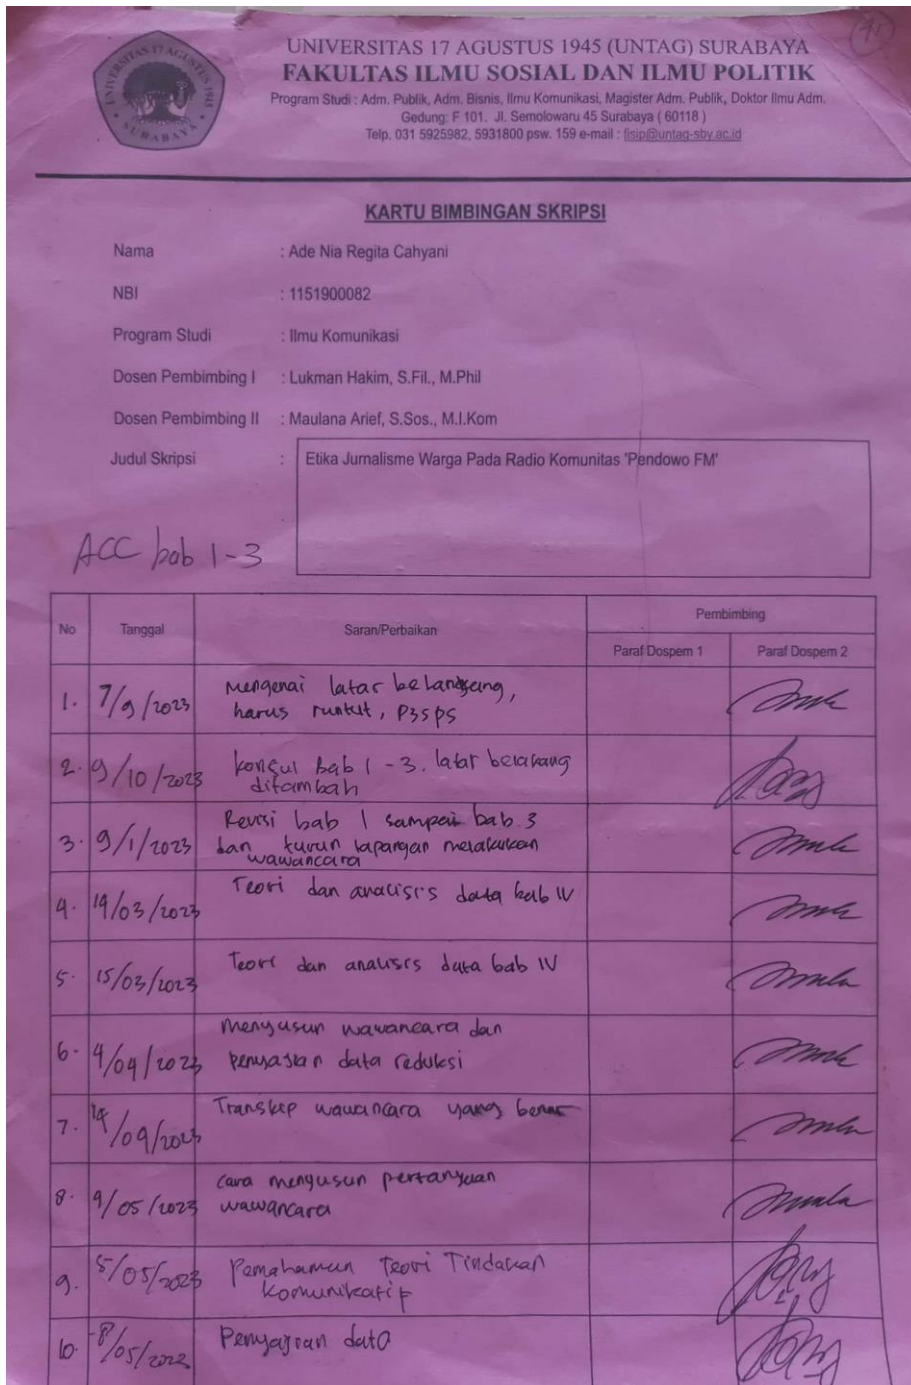 UNIVERSITAS 17 AGUSTUS 1945 (UNTAG) SURABAYA
FAKULTAS ILMU SOSIAL DAN ILMU POLITIK
Program Studi : Adm. Publik, Adm. Bisnis, Ilmu Komunikasi, Magister Adm. Publik, Doktor Ilmu Adm.
Gedung: F 101. Jl. Semolowaru 45 Surabaya ( 60118 )
Telp. 031 5925982, 5931800 psw. 159 e-mail : fisip@untag-sby.ac.id
UNIVERSITAS 17 AGUSTUS 1945
SURABAYA
KARTU BIMBINGAN SKRIPSI
Nama : Ade Nia Regita Cahyani
NBI : 1151900082
Program Studi : Ilmu Komunikasi
Dosen Pembimbing I : Lukman Hakim, S.Fil., M.Phil
Dosen Pembimbing II : Maulana Arief, S.Sos., M.I.Kom
Judul Skripsi : Etika Jurnalisme Warga Pada Radio Komunitas 'Pendowo FM'
ACC bab 1-3
No Tanggal Saran/Perbaikan Pembimbing
Paraf Dospem 1 Paraf Dospem 2
1. 7/9/2023 Mengenai latar belakang,
harus runtut, P3SPS
2. 9/10/2023 konsul Bab 1 - 3. latar belakang
ditambah
3. 9/1/2023 Revisi bab 1 sampai bab 3
dan turun lapangan melakukan
wawancara
4. 14/03/2023 Teori dan analisis data bab IV
5. 15/03/2023 Teori dan analisis data bab IV
6. 4/04/2023 Menyusun wawancara dan
penyajian data reduksi
7. Transkip wawancara yang benar
8. 9/05/2023 cara menyusun pertanyaan
wawancara
9. 5/05/2023 Pemahaman Teori Tindakan
komunikatif
10. 8/05/2023 Penyajian data